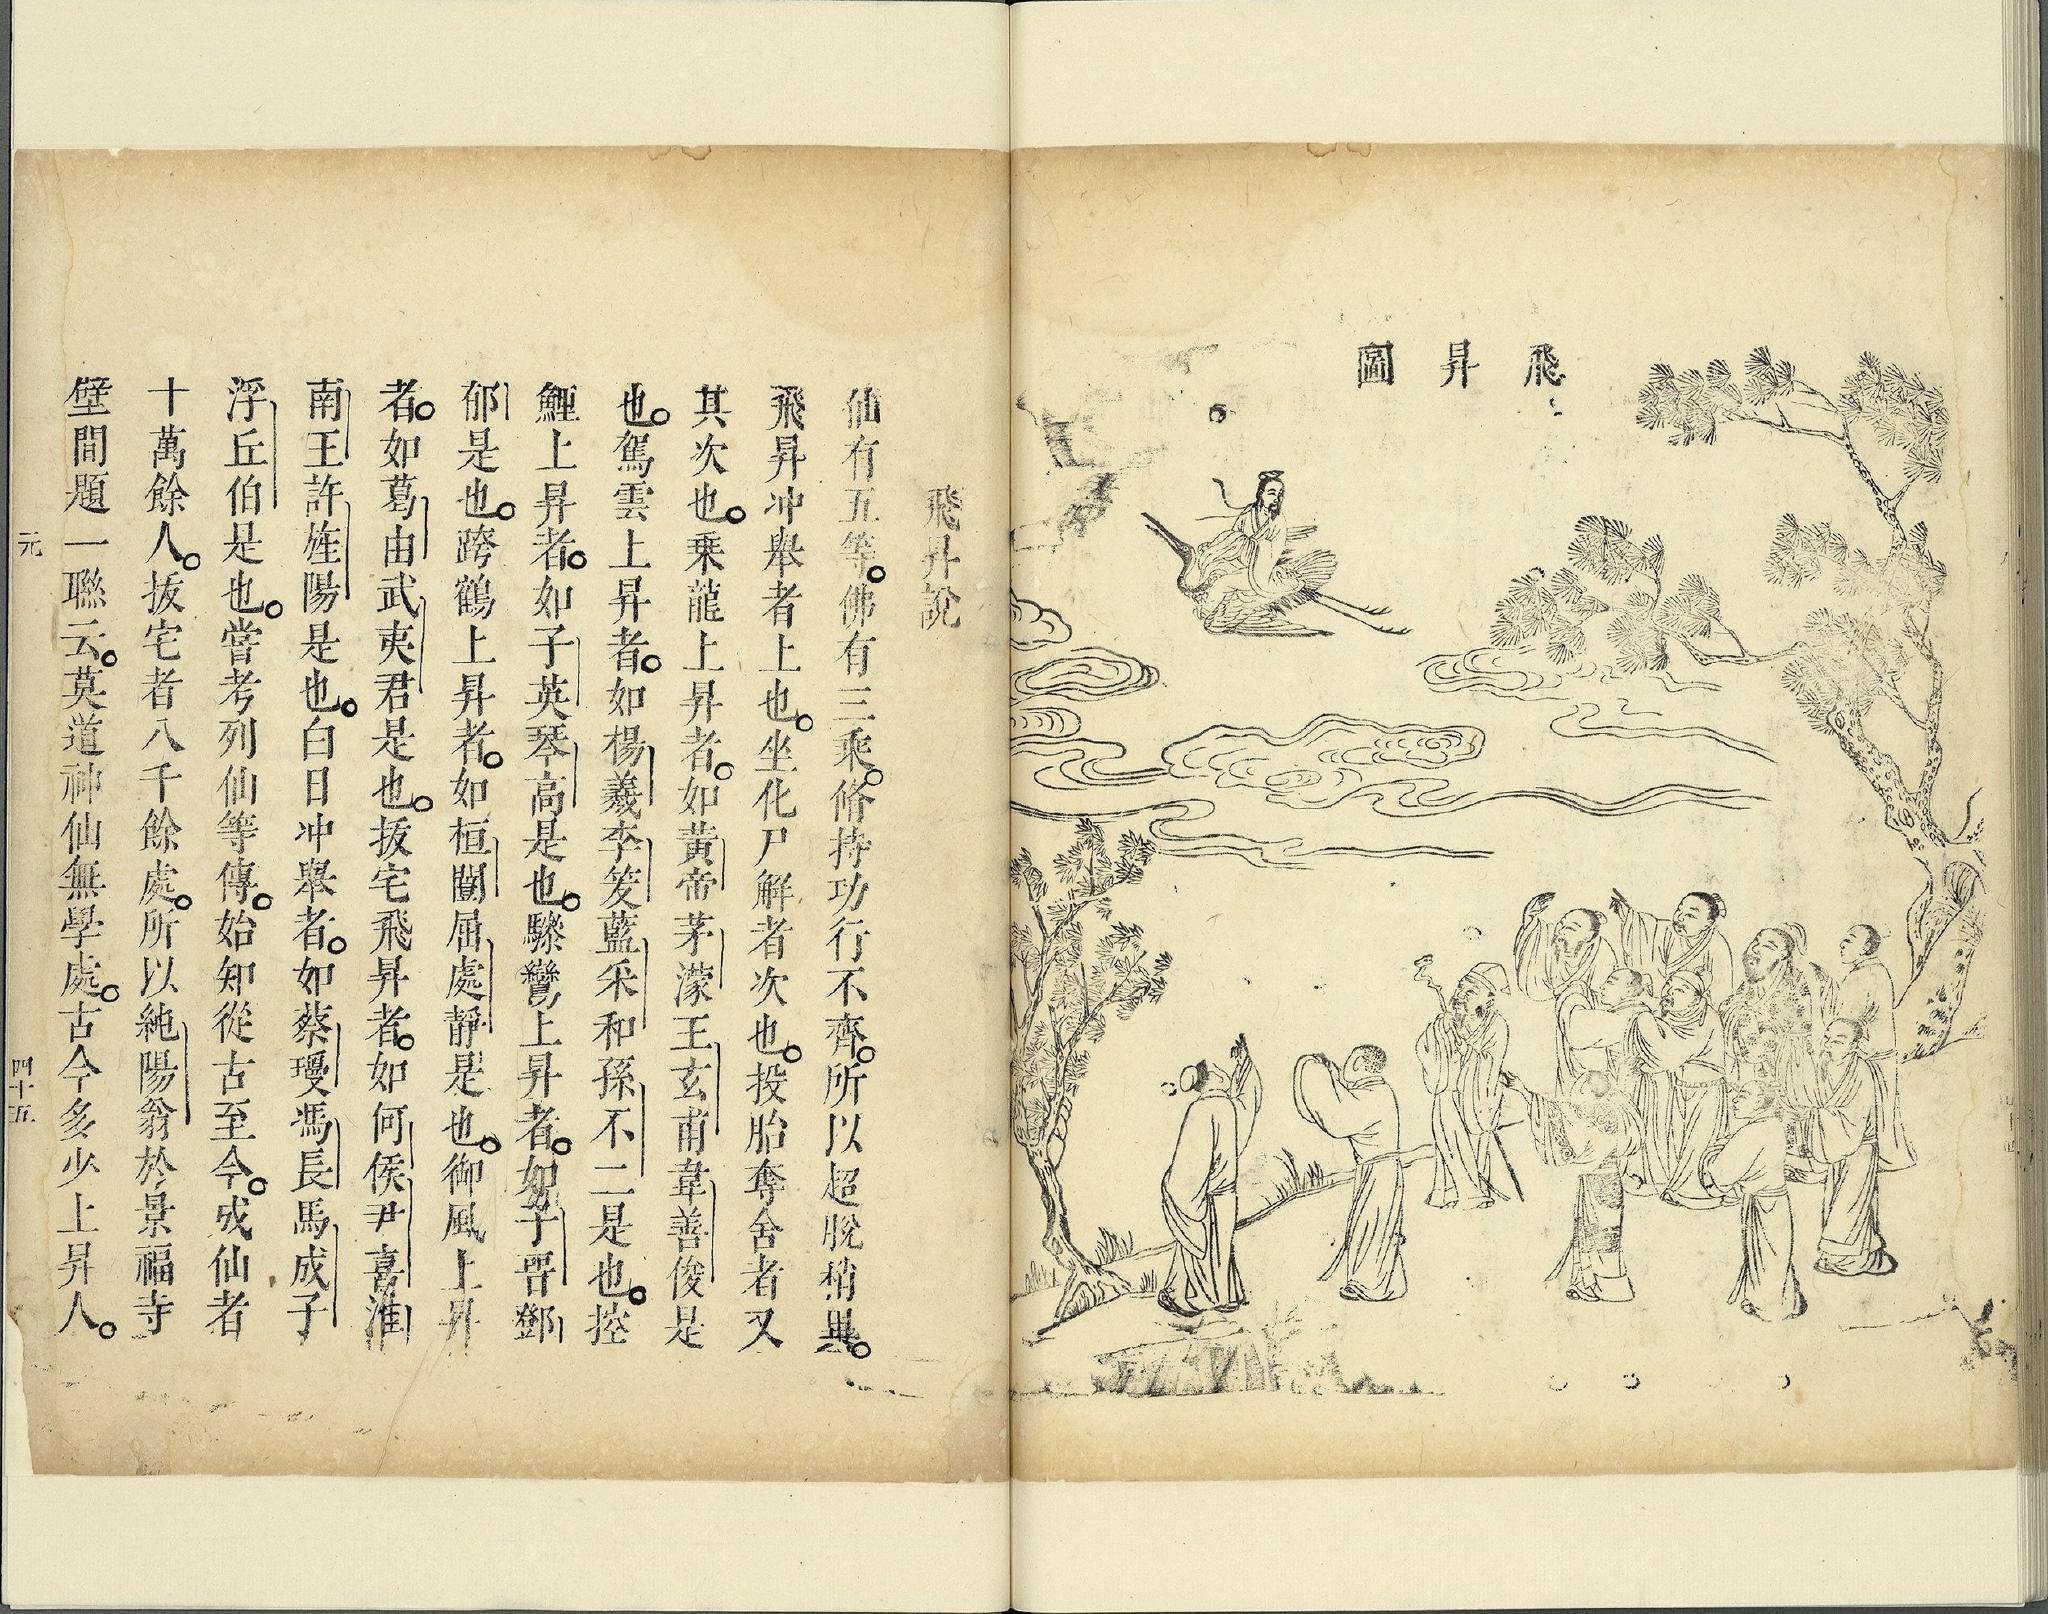 飛昇圖
飛昇說
仙有五等。佛有三乘。脩持功行不齊。所以超脫稍異。
飛昇冲舉者上也。坐化尸解者次也。投胎奪舍者又
其次也。乗龍上昇者。如黃帝茅濛王玄甫韋善俊是
也。駕雲上昇者。如楊羲李筌藍采和孫不二是也。控
鯉上昇者。如子英琴高是也。驂鸞上昇者。如子晋鄧
郁是也。跨鶴上昇者。如桓闓屈處靜是也。御風上昇
者。如葛由武夷君是也。拔宅飛昇者。如何侯尹喜淮
南王許旌陽是也。白日冲舉者。如蔡瓊馮長馬成子
浮丘伯是也。嘗考列仙等傳。始知從古至今。成仙者
十萬餘人。拔宅者八千餘處。所以純陽翁於景福寺
壁間題一聯云。莫道神仙無學處。古今多少上昇人。
元
四十五